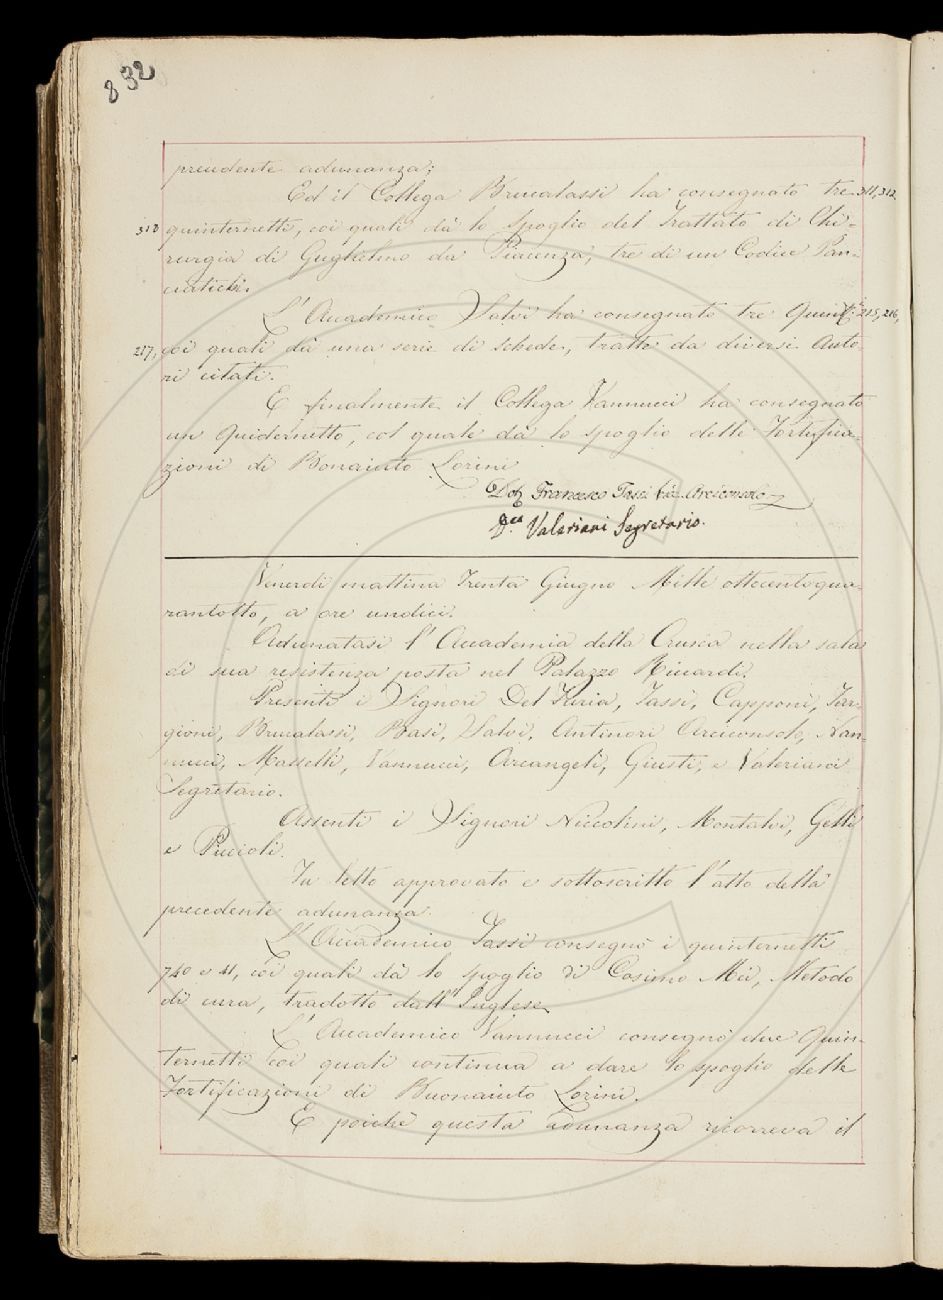 832
precedente adunanza;
Ed il Collega Brucalassi ha consegnato tre 311, 312
313 quinternetti, coi quali dà lo spoglio del Trattato di Chi-
rurgia di Guglielmo da Piacenza, tre di un Codice Pan-
ciatichi.
L'Accademico Salvi ha consegnato tre Quint.i 215, 216,
217, coi quali dà una serie di schede, tratte da diversi Auto-
ri citati.
E finalmente il Collega Vannucci ha consegnato
un Quidernetto, col quale dà lo spoglio delle Fortifica-
zioni di Bonaiuto Lorini
Dott Francesco Tassi Arciconsolo
Valeriani Segretario.
Venerdì mattina Trenta Giugno Mille ottocentoqua-
rantotto, a ore undici.
Adunatasi l'Accademia della Crusca nella sala
di sua resistenza posta nel Palazzo Riccardi.
Presenti i Signori Del Furia, Tassi, Capponi, Tar-
gioni, Brucalassi, Basi, Salvi, Antinori Arciconsolo, Nan-
nucci, Masselli, Vannucci, Arcangeli, Giusti, e Valeriani
Segretario.
Assenti i Signori Niccolini, Montalvi, Gelli
e Puccioli.
Fu letto approvato e sottoscritto l'atto della
precedente adunanza.
L'Accademico Tassi consegnò i quinternetti
740 e 41, coi quali dà lo spoglio di Cosimo Mei, Metodo
di cura, tradotto dall'Inglese
L'Accademico Vannucci consegnò due Quin-
ternetti coi quali continua a dare lo spoglio delle
Fortificazioni di Buonaiuto Lorini.
E poichè questa adunanza ricorreva il